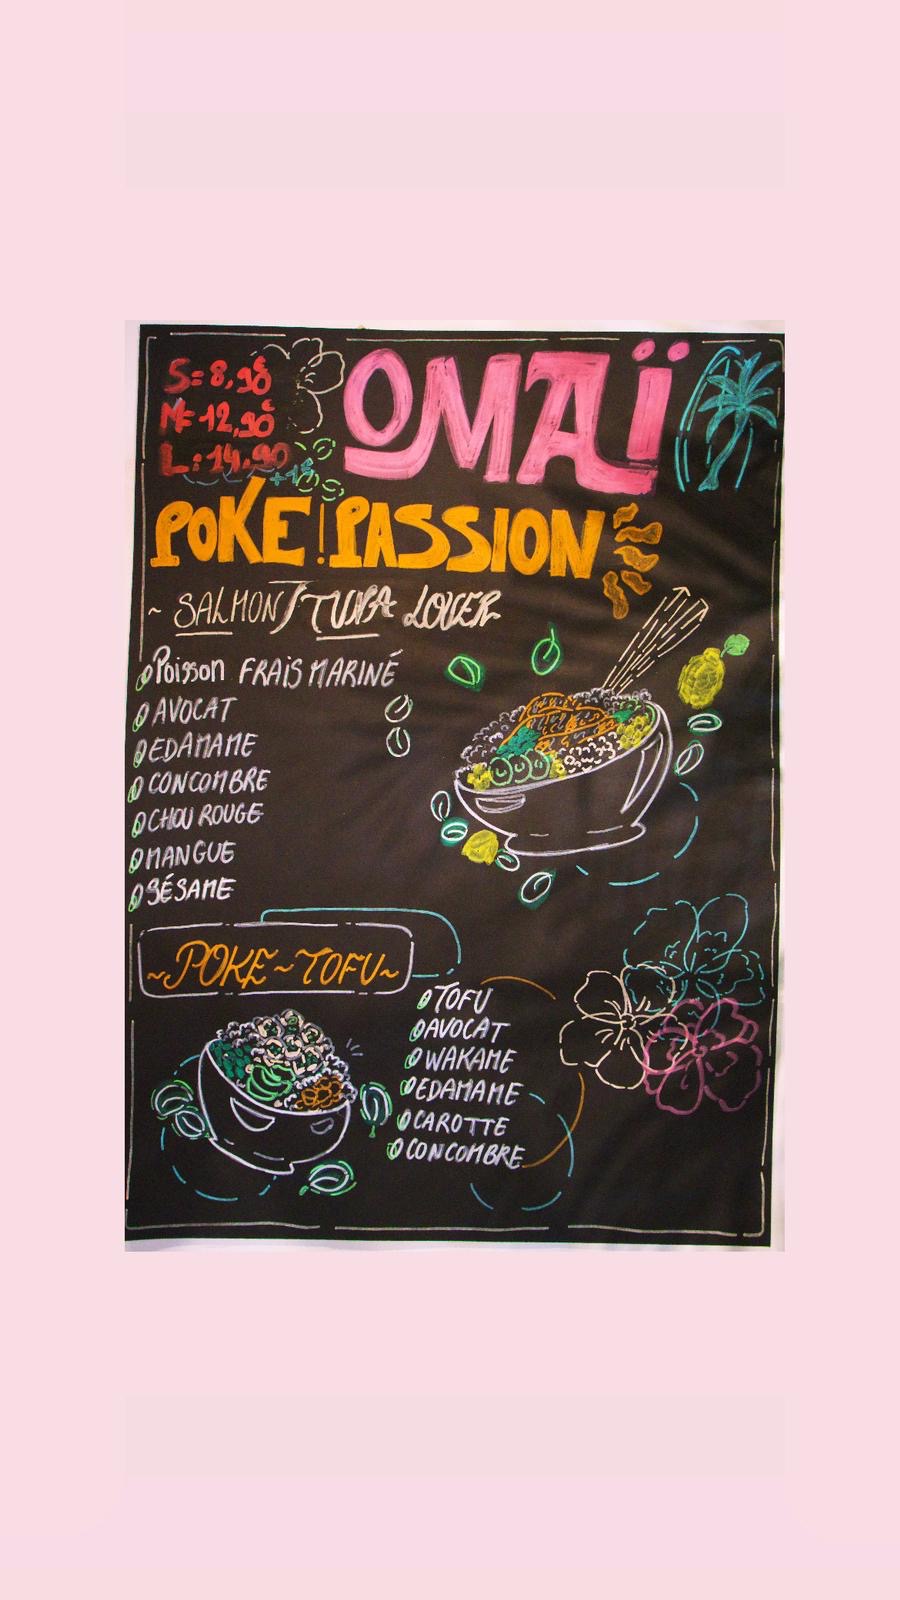 S= 8,90€
M= 12,90€
L: 14,90
+1€
OMAÏ
POKE! PASSION
~ SALMON / TUNA LOVER
Poisson FRAIS MARINÉ
AVOCAT
EDAMAME
CONCOMBRE
CHOU ROUGE
MANGUE
SÉSAME
~POKE~TOFU~
TOFU
AVOCAT
WAKAME
EDAMAME
CAROTTE
CONCOMBRE